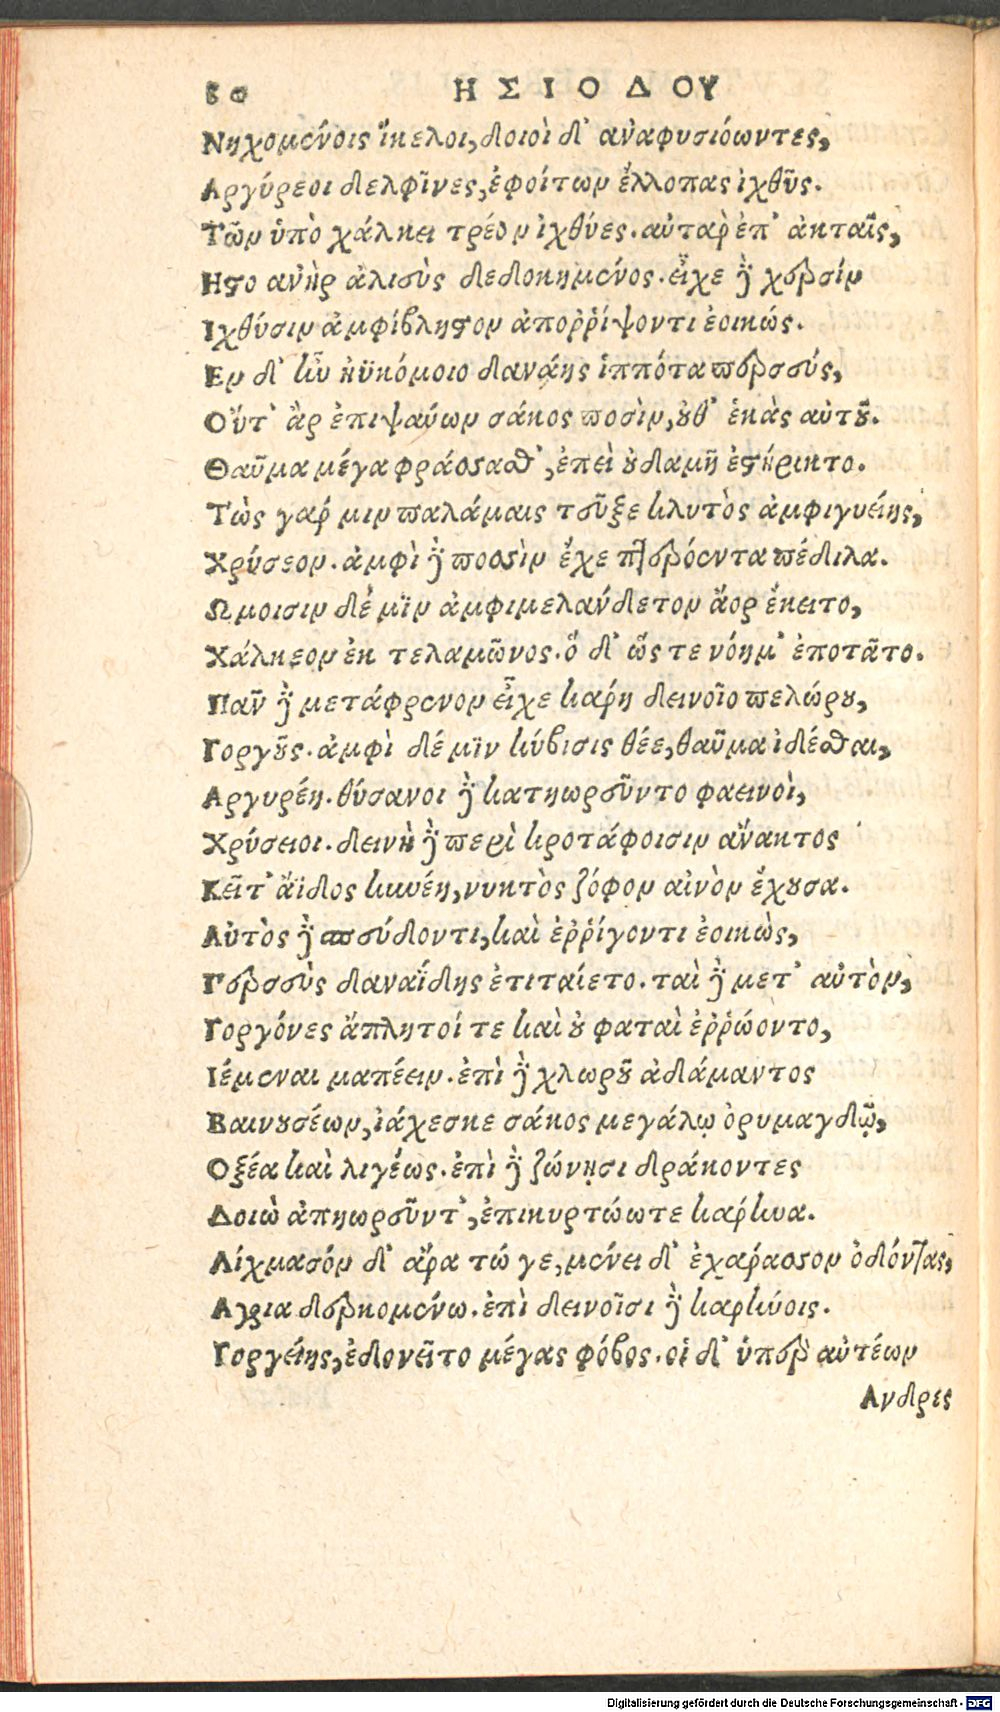 80 ΗΣΙΟΔΟΥ
Νηχομένοις ἴκελοι, δοιοὶ δ' ἀναφυσιόωντες,
Αργύρεοι δελφῖνες, ἐφοίτων ἔλλοπας ἰχθῦς.
Τῶν ὑπὸ χάλκει τρέον ἰχθύες. αὐτὰρ ἐπ' ἀκταῖς,
Ηστο ἀνὴρ ἁλιεὺς δεδοκημένος. εἶχε δὲ χερσὶν
Ιχθύσιν ἀμφίβληστον ἀποῤῥίψοντι ἐοικώς.
Εν δ' ἦν ἠϋκόμοιο δανάης ἱππότα περσεύς,
Οὔτ' ἂρ ἐπιψαύων σάκος ποσὶν, οὐθ' ἑκὰς αὐτοῦ.
Θαῦμα μέγα φράσσασθ', ἐπεὶ οὐδαμῆ ἐστήρικτο.
Τὼς γάρ μιν παλάμαις τεῦξε κλυτὸς ἀμφιγυείης,
Χρύσεον. ἀμφὶ δὲ ποσσὶν ἔχε πτερόεντα πέδιλα.
Ωμοισιν δέ μϊν ἀμφιμελάνδετον ἄορ ἔκειτο,
Χάλκεον ἐκ τελαμῶνος. ὅ δ' ὥς τε νόημ' ἐποτᾶτο.
Πᾶν δὲ μετάφρενον εἶχε κάρη δεινοῖο πελώρου,
Γοργοῦς. ἀμφὶ δέ μϊν κύβισις θέε, θαῦμα ἰδέσθαι,
Αργυρέη. θύσανοι δὲ κατηωρεῦντο φαεινοὶ,
Χρύσειοι. δεινὴ δὲ περὶ κροτάφοισιν ἄνακτος
Κεῖτ' ἄϊδος κυνέη, νυκτὸς ζόφον αἰνὸν ἔχουσα.
Αὐτὸς δὲ σπεύδοντι, καὶ ἐῤῥίγοντι ἐοικὼς,
Περσεὺς δαναΐδης ἐτιταίετο. ταὶ δὲ μετ' αὐτὸν,
Γοργόνες ἄπλητοί τε καὶ οὐ φαταὶ ἐῤῥώοντο,
Ιέμεναι μαπέειν. ἐπὶ δὲ χλωροῦ ἀδάμαντος
Βαινουσέων, ἰάχεσκε σάκος μεγάλῳ ὀρυμαγδῷ,
Οξέα καὶ λιγέως. ἐπὶ δὲ ζώνῃσι δράκοντες
Δοιὼ ἀπηωρεῦντ', ἐπικυρτώωτε κάρηνα.
Λίχμασόν δ' ἄρα τώ γε, μένει δ' ἐχάρασσον ὀδόντας,
Αγρια δερκομένω. ἐπὶ δεινοῖσι δὲ καρήνοις.
Γοργείης, ἐδονεῖτο μέγας φόβος. οἱ δ' ὑπὲρ αὐτέων
Ανδρες
Digitalisierung gefördert durch die Deutsche Forschungsgemeinschaft - DFG